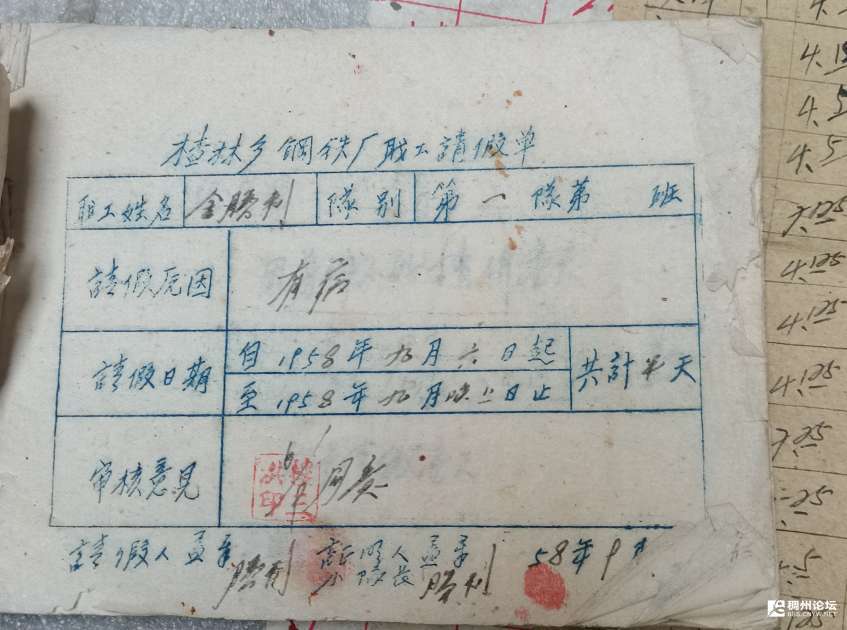 楂林乡钢铁厂职工請假单
职工姓名 金勝利 隊别 第一隊第 班
請假原因 有病
請假日期 自1958年九月六日起 共計 天
至1958年九月 日止
审核意見 同意
請假人盖章 勝利 証明人 小隊長 盖章 勝利 58年9月
4.
4.15
4.5
4.5
7.25
4.25
4.25
4.25
7.25
稠州论坛
BBS.CNYW.NET